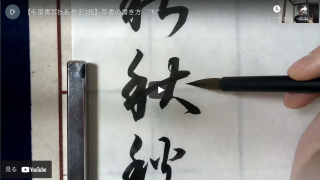 ひ 【毛筆書写技能検定1級】草書の書き方 "秋"
秋
秋
秋
見る YouTube